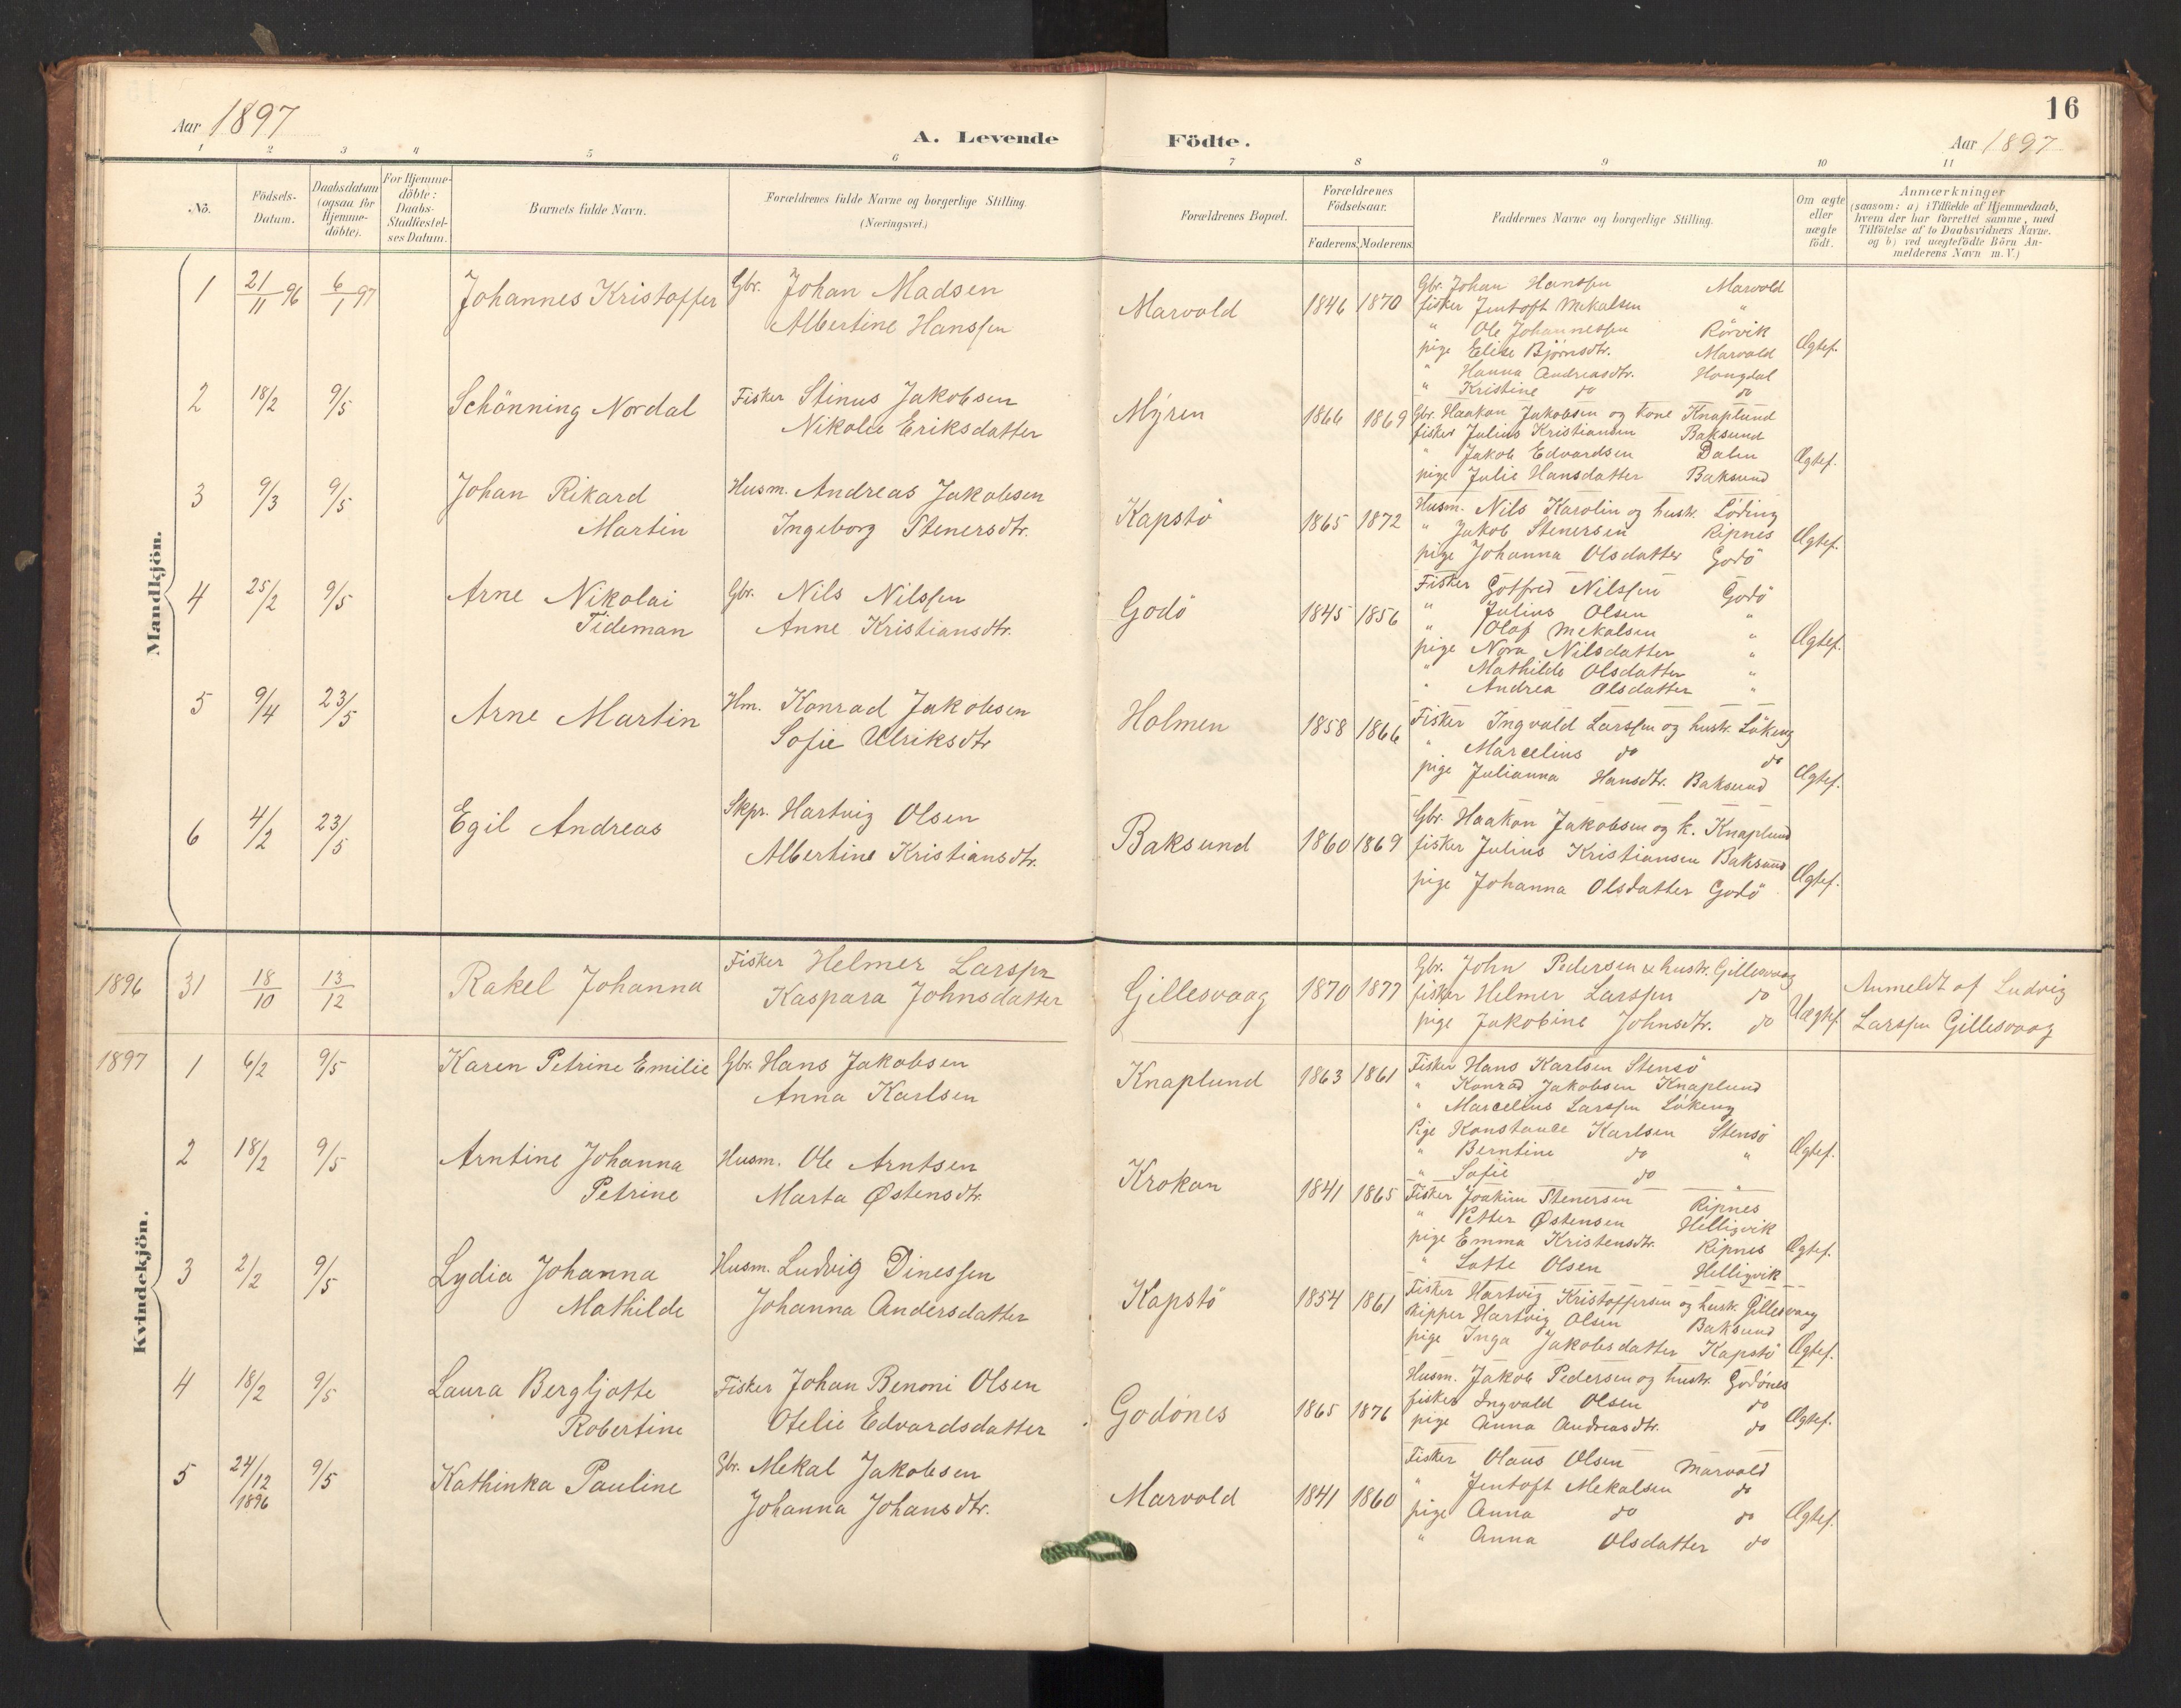 16
Aar 1897
A. Levende Födte.
Aar 1897
1 2 3 4 5 6 7 8 9 10 11
No.
Födsels-Datum.
Daabsdatum (ogsaa for Hjemme-döbte).
For Hjemme-döbte: Daabs-Stadfæstel-ses Datum.
Barnets fulde Navn.
Forældrenes fulde Navne og borgerlige Stilling (Næringsvei.)
Forældrenes Bopæl.
Forældrenes Födselsaar.
Faderens. Moderens.
Faddernes Navne og borgerlige Stilling.
Om ægte eller uægte födt.
Anmærkninger
(saasom: a) i Tilfælde af Hjemmedaab,
hvem der har forrettet samme, med
Tilföielse af to Daabsvidners Navne.
og b) ved uægtefödte Börn An-
melderens Navn m. V.)
Mandkjön.
1 21/11 96 6/1 97 Johannes Kristoffer Gbr. Johan Madsen
Albertine Hanssen
Marvold 1846 1870
Gbr. Johan Hanssen Marvold
fisker Jentoft Mekalsen "
" Ole Johannessen Rørvik
pige Elise Bjørnsdtr. Marvold
" Hanna Andreasdtr. Hongdal
" Kristine do do
Ægtef.
2 18/2 9/5 Schönning Nordal Fisker Stinus Jakobsen
Nikolie Eriksdatter
Mýren 1866 1869
Gbr. Haakon Jakobsen og kone Knaplund
fisker Julius Kristiansen Baksund
" Jakob Edvardsen Dalen
pige Julie Hansdatter Baksund
Ægtef.
3 9/3 9/5 Johan Rikard
Martin
Husm. Andreas Jakobsen
Ingeborg Stenersdtr.
Kapstö 1865 1872
Husm. Nils Karolin og hustr. Löding
" Jakob Stenersen Ripnes
pige Johanna Olsdatter Godö
Ægtef.
4 25/2 9/5 Arne Nikolai
Tideman
Gbr. Nils Nilssen
Anne Kristiansdtr.
Godö 1845 1856
Fisker Gotfred Nilssen Godö
" Julius Olsen "
" Olof Mekalsen "
pige Nora Nilsdatter "
" Mathilde Olsdatter "
" Andrea Olsdatter "
Ægtef.
5 9/4 23/5 Arne Martin Hm. Konrad Jakobsen
Sofie Ulriksdtr
Holmen 1858 1866
Fisker Ingvald Larssen og hustr. Lökeng
" Marcelius do do
pige Julianna Hansdtr. Baksund
Ægtef.
6 4/2 23/5 Egil Andreas Skpr. Hartvig Olsen
Albertine Kristiansdtr.
Baksund 1860 1869
Gbr. Haakon Jakobsen og k. Knaplund
fisker Julius Kristiansen Baksund
pige Johanna Olsdatter Godö
Ægtef.
Kvindekjön.
1896 31 18/10 13/12 Rakel Johanna Fisker Helmer Larssen
Kaspara Johnsdatter
Gillesvaag 1870 1877
Gbr. John Pedersen & hustr. Gillesvaag
fisker Helmer Larssen do
pige Jakobine Johnsdtr. do
Uægtef.
Anmeldt af Ludvig
Larssen Gillesvaag
1897 1 6/2 9/5 Karen Petrine Emilie Gbr. Hans Jakobsen
Anna Karlsen
Knaplund 1863 1861
Fisker Hans Karlsen Stensö
" Konrad Jakobsen Knaplund
" Marcelius Larssen Lökeng
Pige Konstance Karlsen Stensö
" Berntine do "
" Sofie do "
Ægtef.
2 18/2 9/5 Arntine Johanna
Petrine
Husm. Ole Arntsen
Marta Østensdtr
Krokan 1841 1865
Fisker Joakim Stenersen Ripnes
" Petter Østensen Helligvik
pige Emma Kristensdtr. Ripnes
" Lotte Olsen Helligvik
Ægtef.
3 2/2 9/5 Lydia Johanna
Mathilde
Husm. Ludvig Dinessen
Johanna Andersdatter
Kapstö 1854 1861
Fisker Hartvig Kristoffersen og hustr. Gillesvaag
skipper Hartvig Olsen Baksund
pige Inga Jakobsdatter Kapstö
Ægtef.
4 18/2 9/5 Laura Bergljotte
Robertine
Fisker Johan Benoni Olsen
Otelie Edvardsdatter
Godönes 1865 1876
Husm. Jakob Pedersen og hustr. Godönes
fisker Ingvald Olsen do
pige Anna Andreasdtr. do
Ægtef.
5 24/12 1896 9/5 Kathinka Pauline Gbr. Mekal Jakobsen
Johanna Johansdtr.
Marvold 1841 1860
Fisker Olaus Olsen Marvold
" Jentoft Mekalsen do
pige Anna do do
" Anna Olsdatter do
Ægtef.